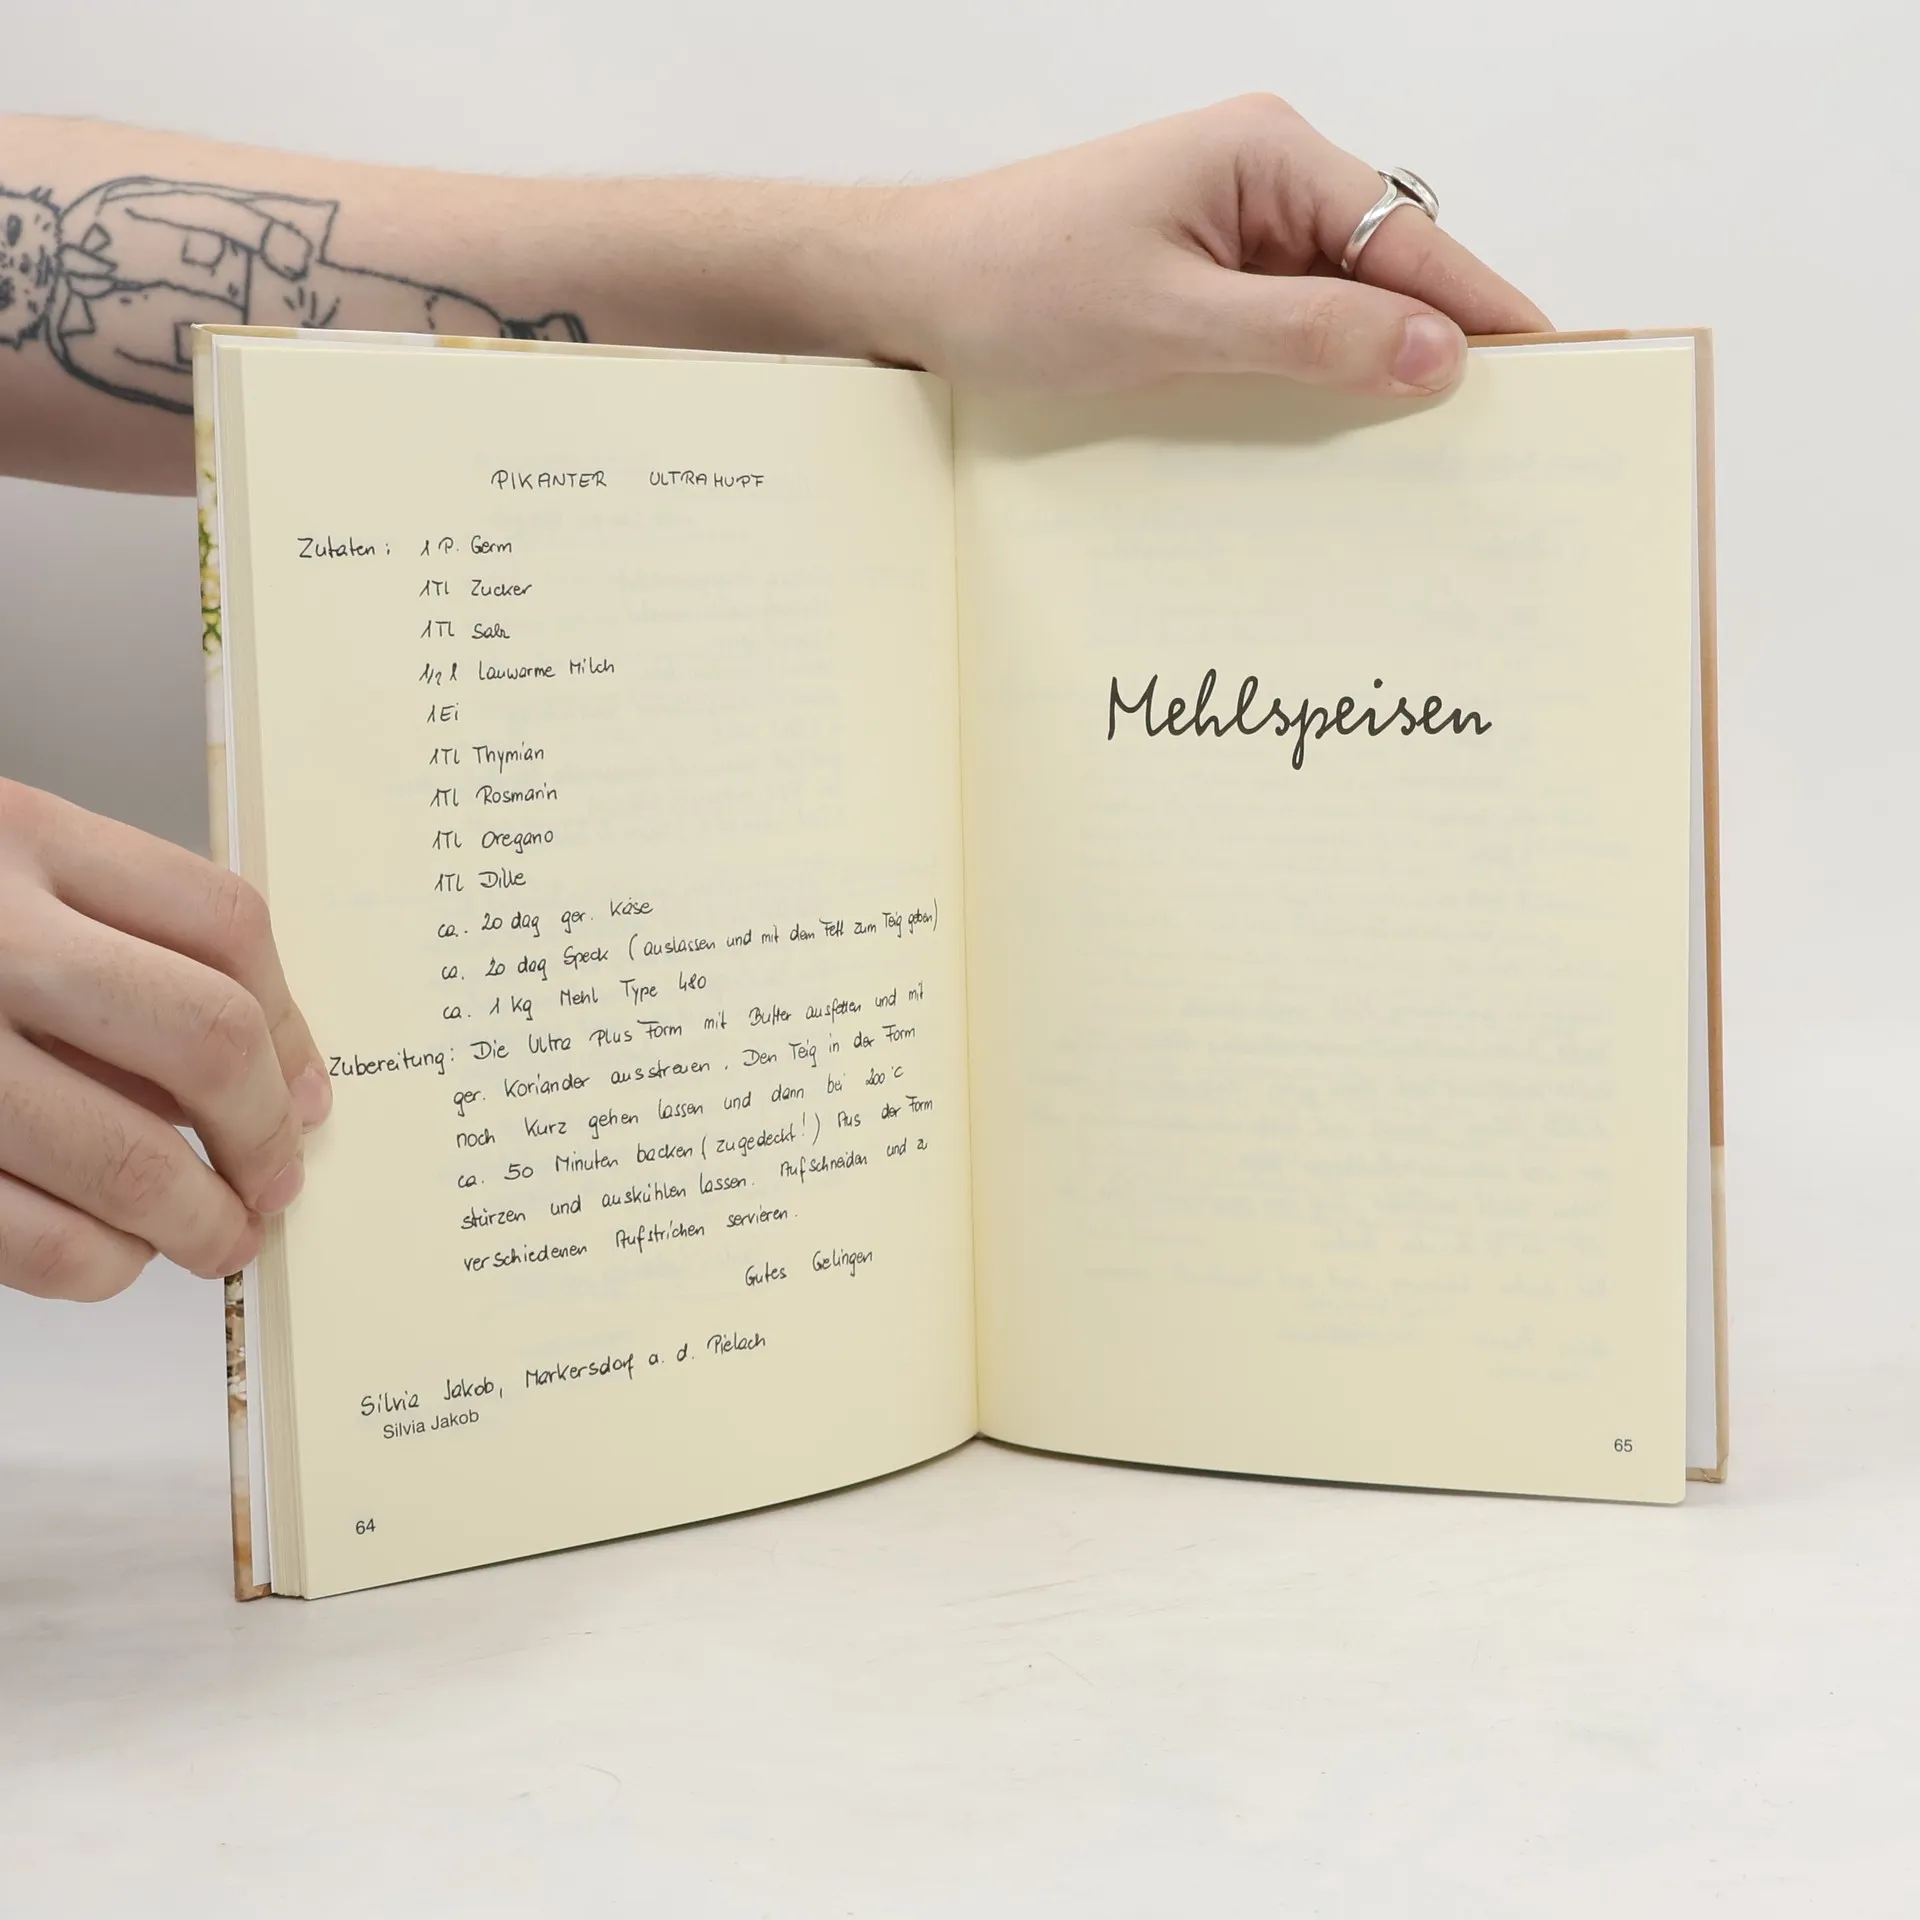 PIKANTER ULTRAHUPF
Zutaten: 1 P. Germ
1TL Zucker
1TL Salz
1/2 l lauwarme Milch
1 Ei
1TL Thymian
1TL Rosmarin
1TL Oregano
1TL Dille
ca. 20 dag ger. Käse
ca. 20 dag Speck (auslassen und mit dem Fett zum Teig geben)
ca. 1 kg Mehl Type 480
Zubereitung: Die Ultra Plus Form mit Butter ausfetten und mit
ger. Koriander ausstreuen. Den Teig in der Form
noch kurz gehen lassen und dann bei 200°C
ca. 50 Minuten backen (zugedeckt!) Aus der Form
stürzen und auskühlen lassen. Aufschneiden und zu
verschiedenen Aufstrichen servieren.
Gutes Gelingen
Silvia Jakob, Markersdorf a. d. Pielach
Silvia Jakob
64
Mehlspeisen
65